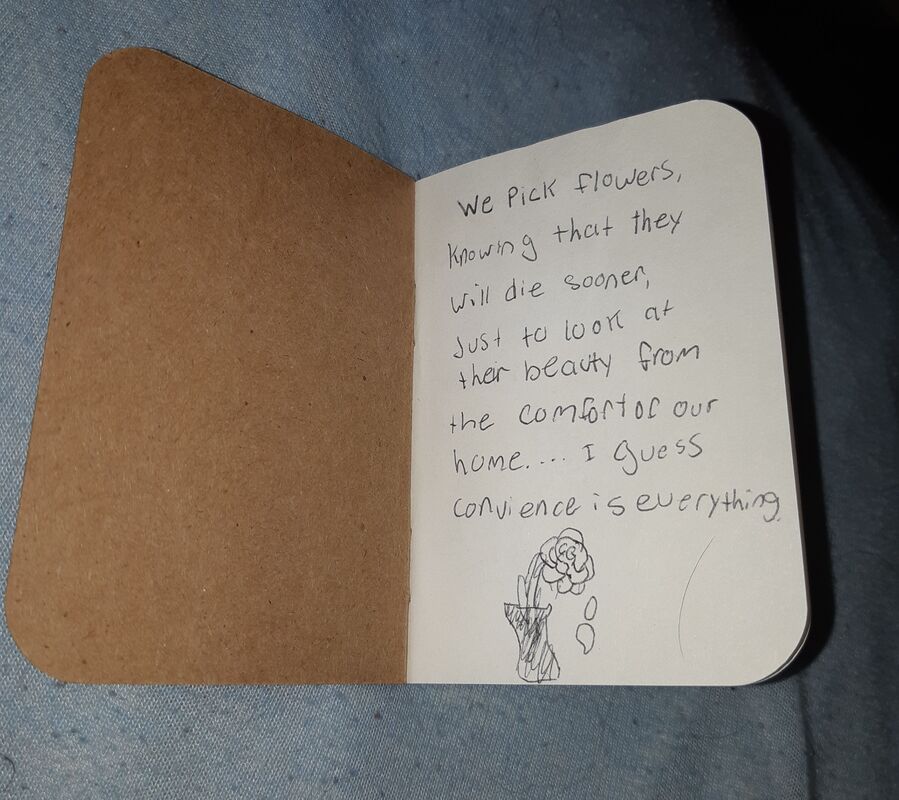 We Pick flowers,
Knowing that they
will die sooner,
Just to look at
ther beauty from
the comfort of our
home.... I guess
convience is everything.